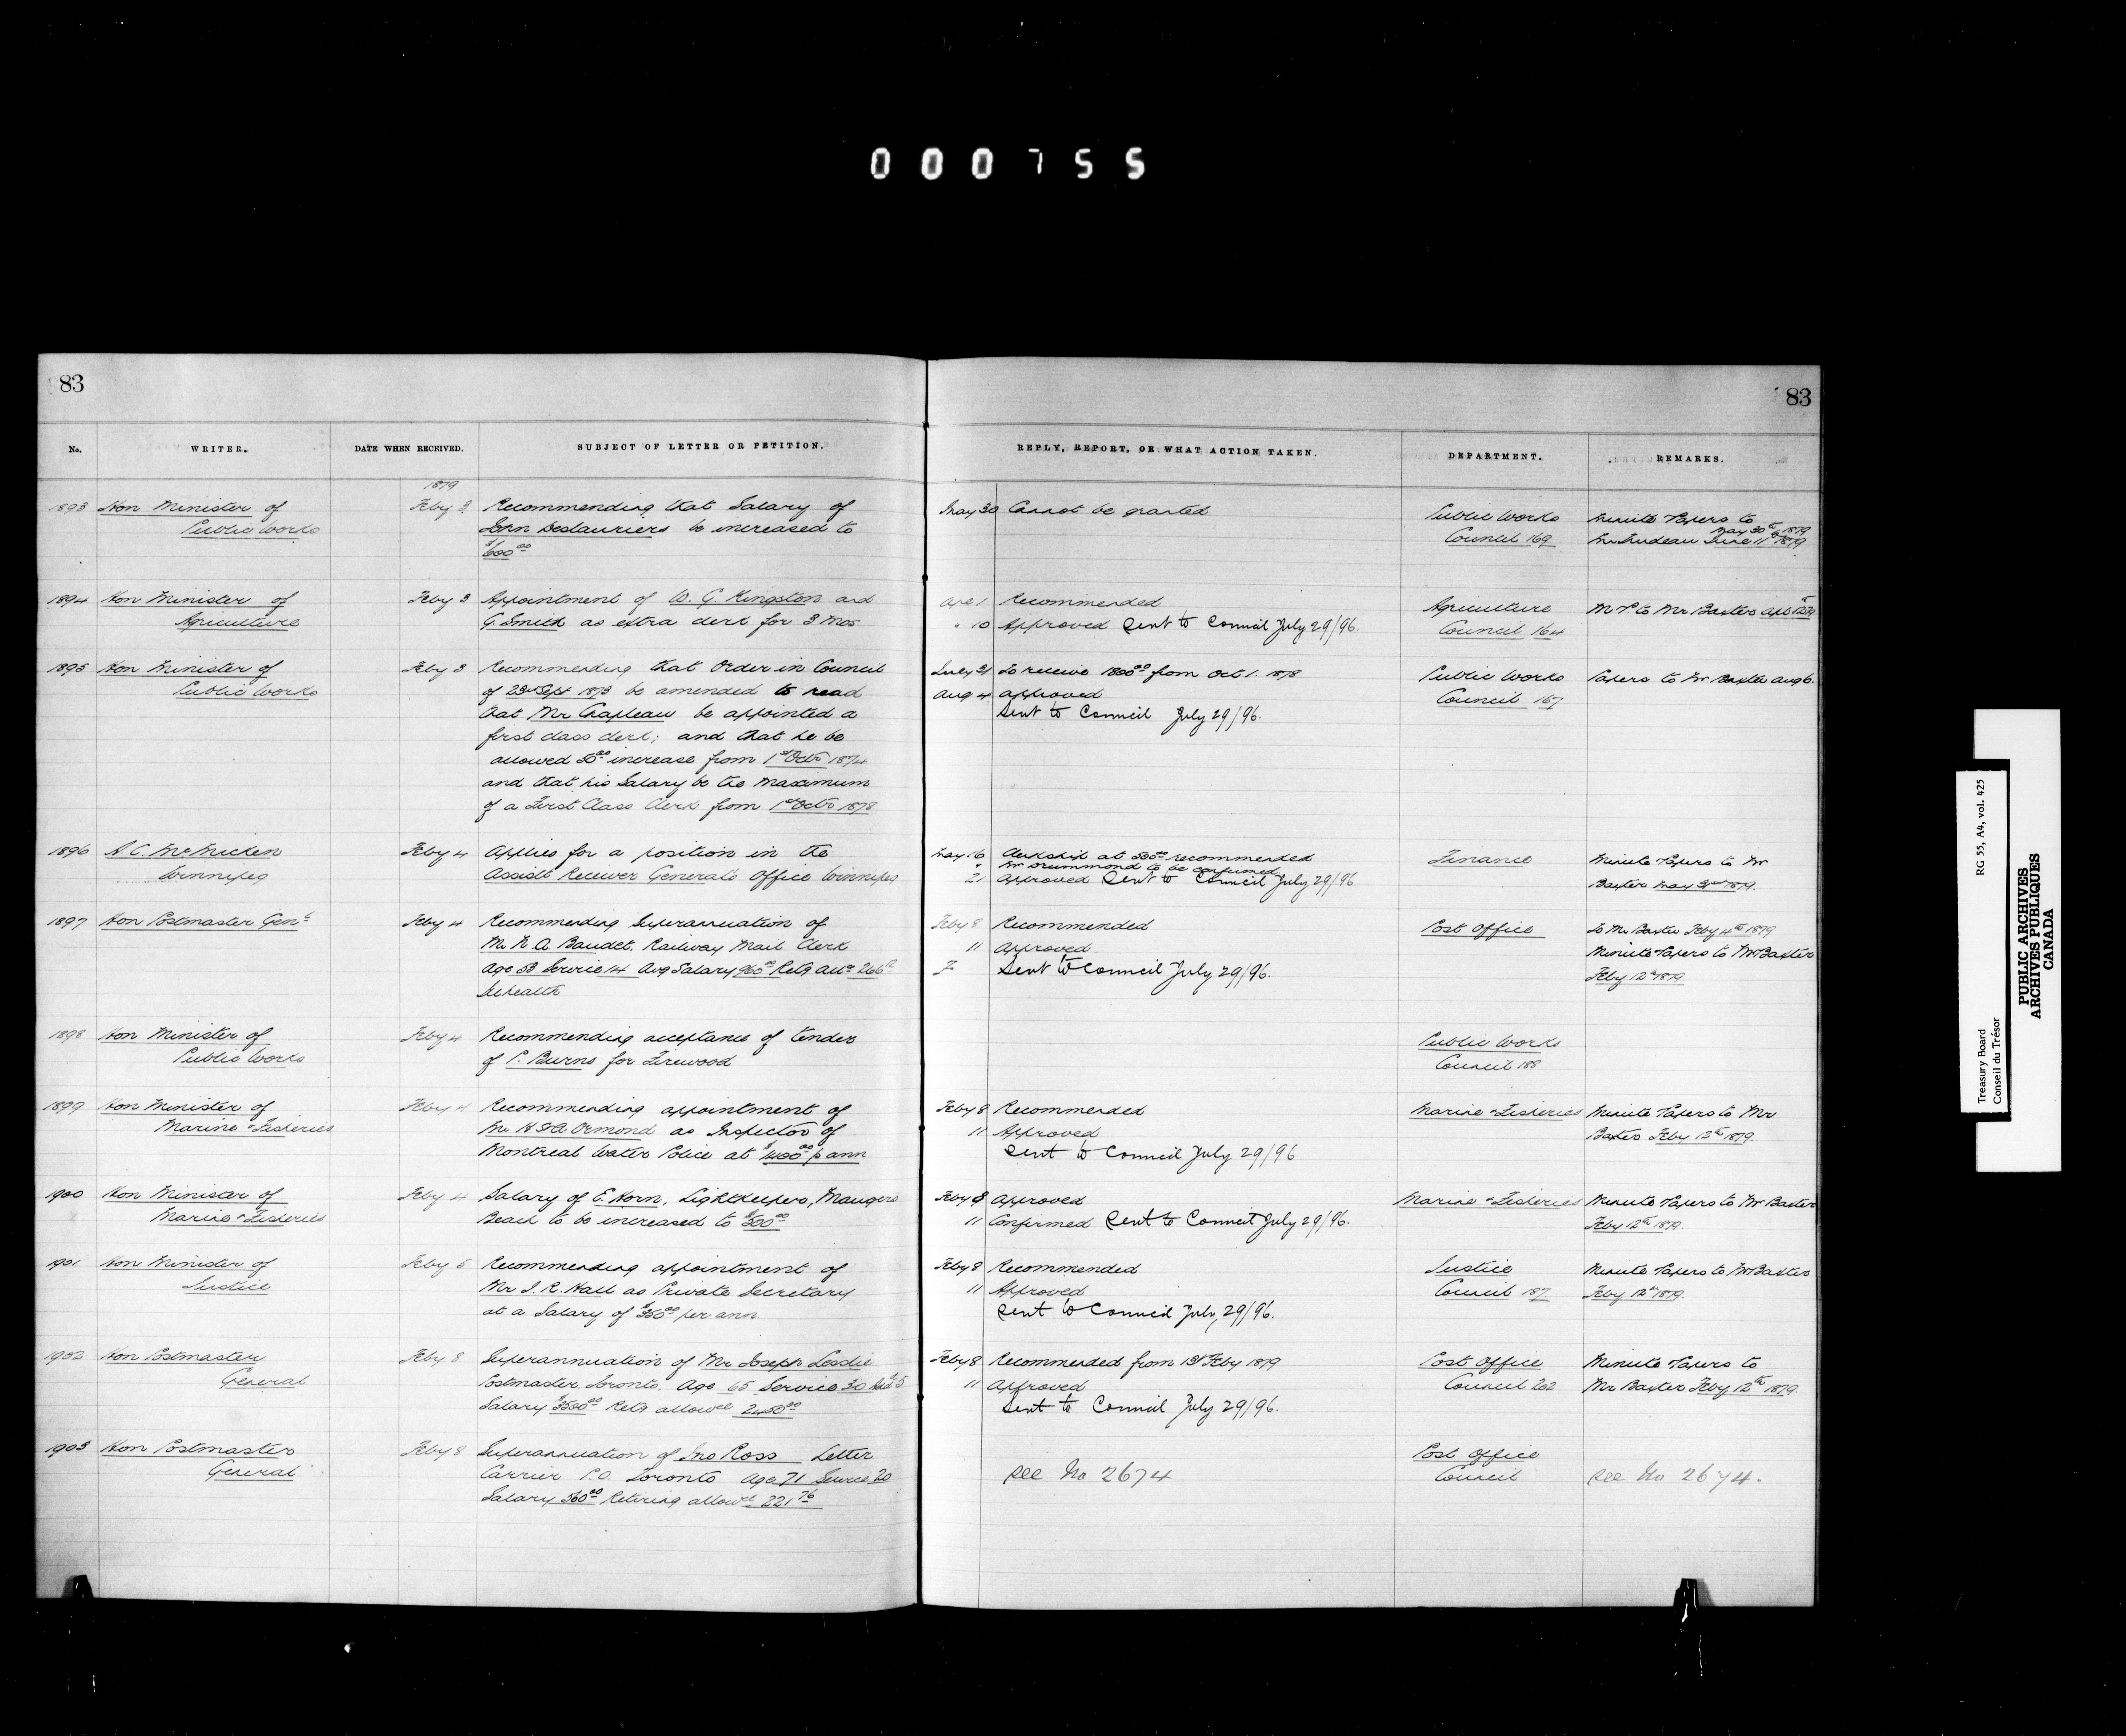 000755
83
83
No.
WRITER.
DATE WHEN RECEIVED.
SUBJECT OF LETTER OR PETITION.
REPLY, REPORT, OR WHAT ACTION TAKEN.
DEPARTMENT.
REMARKS.
1879
1893 Hon Minister of Feby 3 Recommending that Salary of May 30 Cannot be granted Public Works Minute Papers to
Public Works John Deslauriers be increased to Council 169 May 30th 1879
Mr Trudeau June 11th 1879
$600.00
1894 Hon Minister of Feby 3 Appointment of W. G. Kingston and Apl 1 Recommended Agriculture M.P. to Mr Baxter Apl
Agriculture G. Smith as extra clerk for 3 Mos " 10 Approved Sent to Council July 29/96. Council 164
1895 Hon Minister of Feby 3 Recommending that Order in Council July 31 To receive 1800.00 from Oct 1. 1878 Public Works Papers to Mr Baxter Aug 6.
Public Works of 23rd Sept 1873 be amended to read Aug 4 Approved Council 167
that Mr Chapleau be appointed a Sent to Council July 29/96.
first class clerk; and that he be
allowed 50.00 increase from 1st Octr 1874
and that his Salary be the maximum
of a First Class Clerk from 1st Octr 1878
1896 A. C. McMicken Feby 4 Applies for a position in the May 16 Clerkship at 550.00 recommended Finance Minute Papers to Mr
Winnipeg Assistt Receiver General's Office Winnipeg " Mr Drummond to be confirmed
21 Approved Sent to Council July 29/96 Baxter May 1879.
1897 Hon Postmaster Genl Feby 4 Recommending Superannuation of Feby 8 Recommended Post Office To Mr Baxter Feby 4th 1879
Mr N. A. Baudet, Railway Mail Clerk 11 Approved Minute Papers to Mr Baxter
Age 53 Service 14 Avg Salary 960.00 Retg Allce J Sent to Council July 29/96. Feby 12th 1879.
Ill health
1898 Hon Minister of Feby 4 Recommending acceptance of tender Public Works
Public Works of P. Burns for Firewood Council 188
1899 Hon Minister of Feby 4 Recommending appointment of Feby 8 Recommended Marine & Fisheries Minute Papers to Mr
Marine & Fisheries Mr Ormond as Inspector of 11 Approved Baxter Feby 12th 1879.
Montreal Water Police at $1400.00 p ann Sent to Council July 29/96
1900 Hon Minister of Feby 4 Salary of E. Horn, Lightkeeper, Maugers Feby 8 Approved Marine & Fisheries Minute Papers to Mr Baxter
Marine & Fisheries Beach to be increased to $500.00 11 Confirmed Sent to Council July 29/96. Feby 12th 1879.
1901 Hon Minister of Feby 5 Recommending appointment of Feby 8 Recommended Justice Minute Papers to Mr Baxter
Justice Mr J. R. Hall as Private Secretary 11 Approved Council 187 Feby 12th 1879.
at a Salary of $350.00 per ann Sent to Council July 29/96.
1902 Hon Postmaster Feby 8 Superannuation of Mr Joseph Lesslie Feby 8 Recommended from 1st Feby 1879 Post Office Minute Papers to
General Postmaster Toronto. Age 65 Service 30 11 Approved Council 202 Mr Baxter Feby 12th 1879.
Salary 3500.00 Retg allowce 2450.00 Sent to Council July 29/96.
1903 Hon Postmaster Feby 8 Superannuation of Jno Ross Letter Post Office
General Carrier P.O. Toronto Age 71 Service 20 See No 2674 Council See No 2674.
Salary 560.00 Retiring allowce 221.76
RG 55, A4, vol. 425
Treasury Board
Conseil du Trésor
PUBLIC ARCHIVES
ARCHIVES PUBLIQUES
CANADA